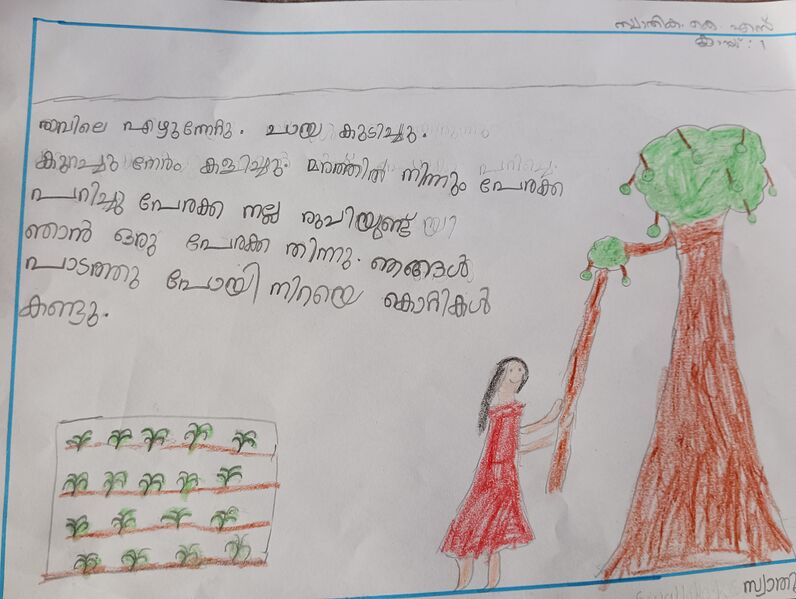 സ്വാതിക. കെ. എസ്
ക്ലാസ് : 1
രാവിലെ എഴുന്നേറ്റു. ചായ കുടിച്ചു.
കുറച്ചു നേരം കളിച്ചു. മരത്തിൽ നിന്നും പേരക്ക
പറിച്ചു പേരക്ക നല്ല രുചിയുണ്ട്
ഞാൻ ഒരു പേരക്ക തിന്നു. ഞങ്ങൾ
പാടത്തു പോയി നിറയെ കൊറ്റികൾ
കണ്ടു.
സ്വാതി